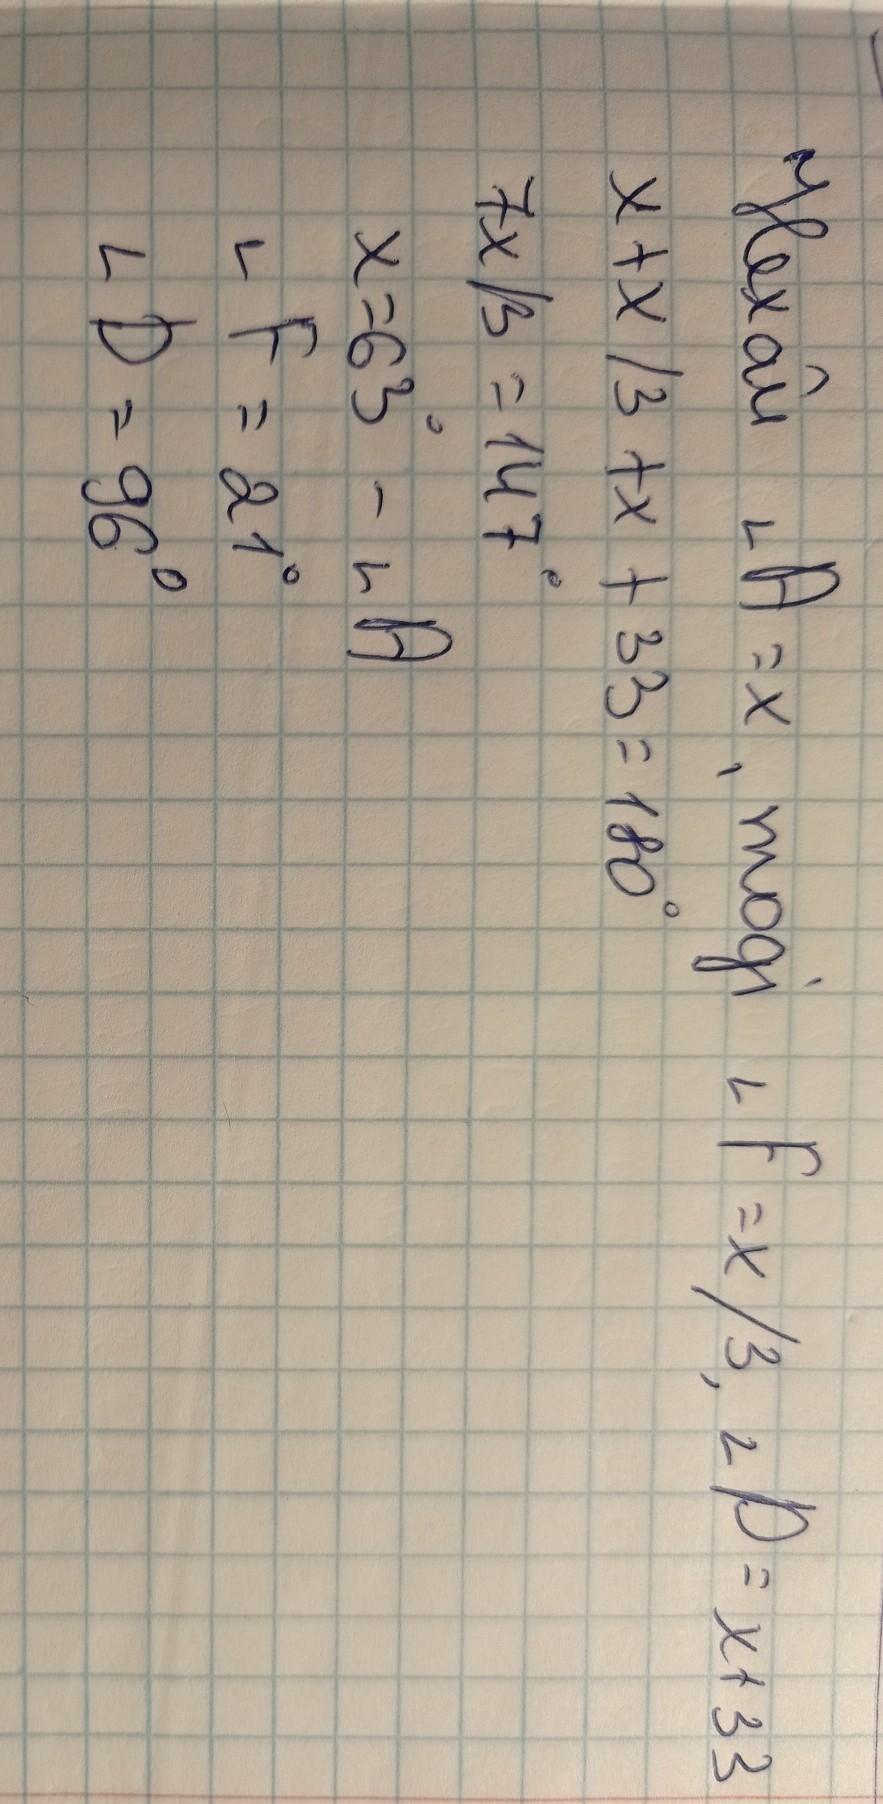 Нехай ∟A = x, тоді ∟F = x/3, ∟D = x+33
x+x/3+x+33=180°
7x/3 = 147°
x=63° - ∟A
∟F = 21°
∟D = 96°